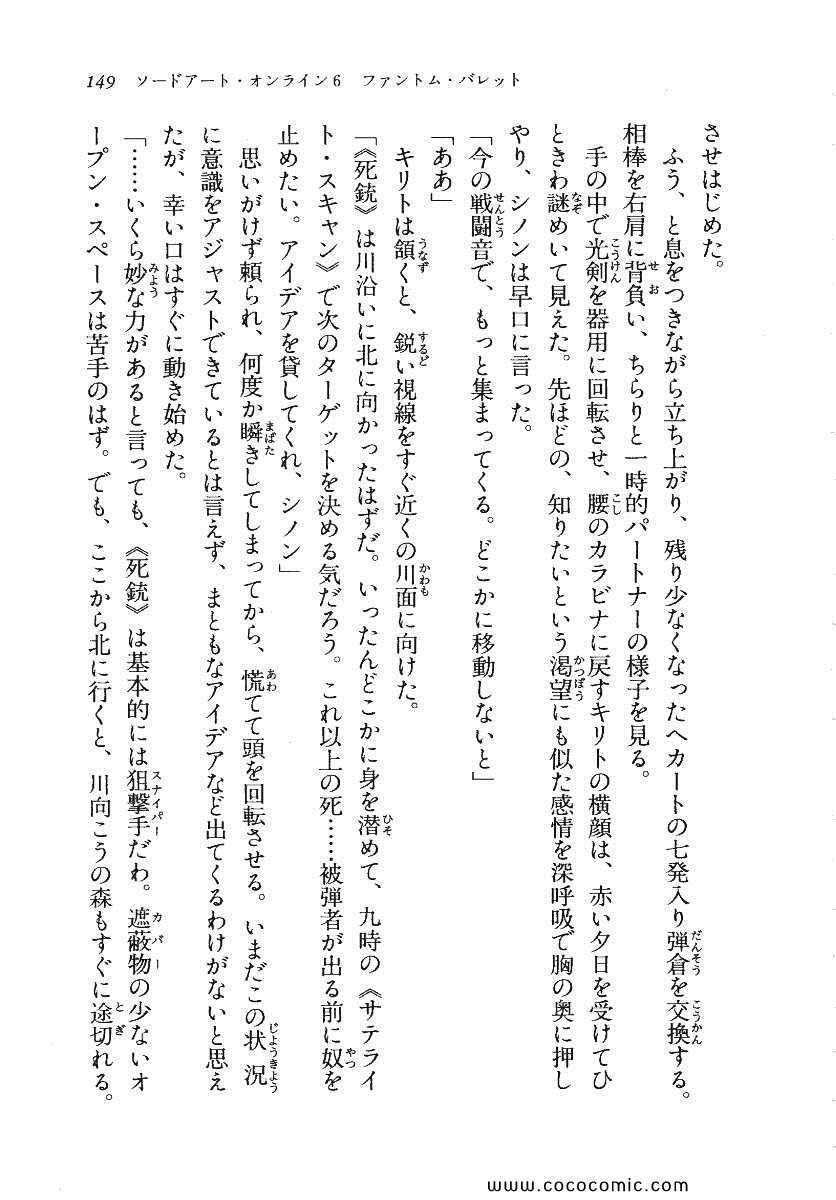 149　ソードアート・オンライン6　ファントム・バレット
させはじめた。
　ふう、と息をつきながら立ち上がり、残り少なくなったヘカートの七発入り弾倉を交換する。
相棒を右肩に背負い、ちらりと一時的パートナーの様子を見る。
　手の中で光剣を器用に回転させ、腰のカラビナに戻すキリトの横顔は、赤い夕日を受けてひ
ときわ謎めいて見えた。先ほどの、知りたいという渇望にも似た感情を深呼吸で胸の奥に押し
やり、シノンは早口に言った。
「今の戦闘音で、もっと集まってくる。どこかに移動しないと」
「ああ」
　キリトは頷くと、鋭い視線をすぐ近くの川面に向けた。
「《死銃》は川沿いに北に向かったはずだ。いったんどこかに身を潜めて、九時の《サテライ
ト・スキャン》で次のターゲットを決める気だろう。これ以上の死……被弾者が出る前に奴を
止めたい。アイデアを貸してくれ、シノン」
　思いがけず頼られ、何度か瞬きしてしまってから、慌てて頭を回転させる。いまだこの状況
に意識をアジャストできているとは言えず、まともなアイデアなど出てくるわけがないと思え
たが、幸い口はすぐに動き始めた。
「……いくら妙な力があると言っても、《死銃》は基本的には狙撃手だわ。遮蔽物の少ないオ
ープン・スペースは苦手のはず。でも、ここから北に行くと、川向こうの森もすぐに途切れる。
www.cococomic.com